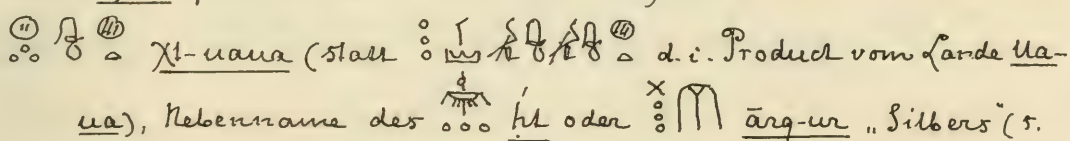 χt-uaua (statt d. i. Product vom Lande Ua-
ua), Nebenname des ḥt oder ārq-ur „Silbers" (s.